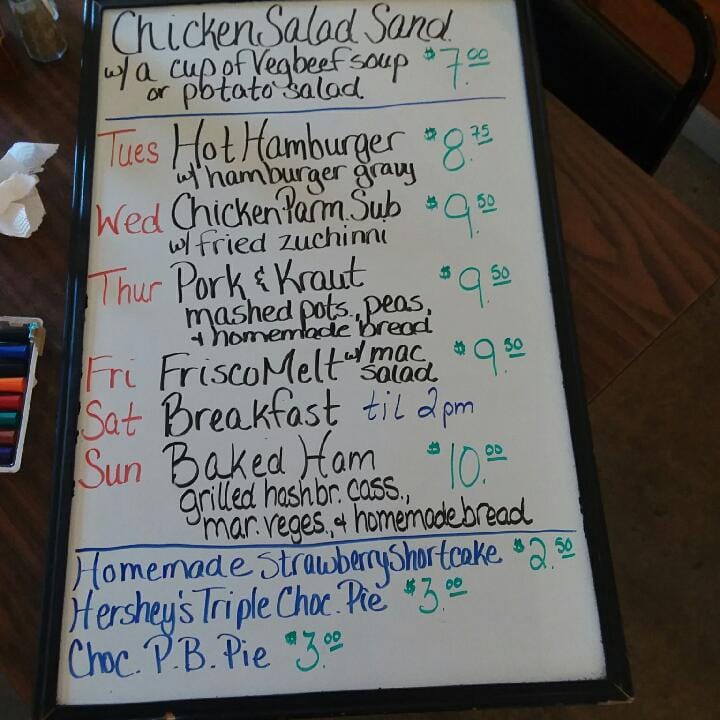 Chicken Salad Sand. $7.00
w/a cup of Vegbeef soup
or potato salad
Tues Hot Hamburger $8.75
w/ hamburger gravy
Wed Chicken Parm. Sub $9.50
w/ fried zuchinni
Thur Pork & Kraut $9.50
mashed pots., peas,
+ homemade bread
Fri Frisco Melt w/ mac salad $9.50
Sat Breakfast til 2pm
Sun Baked Ham $10.00
grilled hashbr. cass.,
mar. veges., + homemade bread
Homemade Strawberry Shortcake $2.50
Hershey's Triple Choc. Pie $3.00
Choc. P.B. Pie $3.00